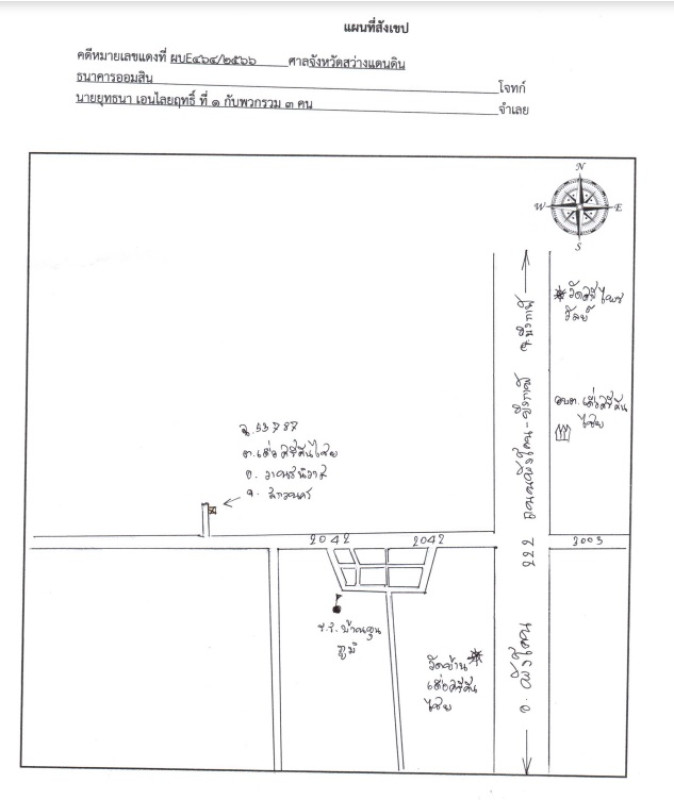 แผนที่สังเขป
คดีหมายเลขแดงที่ ผบE๔๖๔/๒๕๖๖ ศาลจังหวัดสว่างแดนดิน
ธนาคารออมสิน โจทก์
นายยุทธนา เอนไลยฤทธิ์ ที่ ๑ กับพวกรวม ๓ คน จำเลย
N
W E
S
วัดศรีโพธ
วัลย์
จ.บึงกาฬ
ถนนพังโคน-บึงกาฬ
222
อ.พังโคน
อบต.เดื่อศรีคัน
ไชย
ฉ.33787
ต.เดื่อศรีคันไชย
อ.วานรนิวาส
จ.สกลนคร
2042 2042
2003
ร.ร.บ้าน
ภูมิ
วัดบ้าน
เดื่อศรีคัน
ไชย